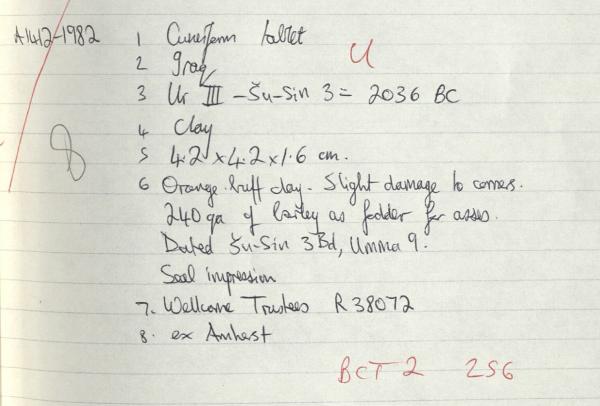 A1412-1982 1 Cuneiform tablet
U
2 Iraq
3 Ur III - Šu-Sin 3 = 2036 BC
4 Clay
8
5 4.2 x 4.2 x 1.6 cm.
6 Orange-buff clay. Slight damage to corners.
240 qa of barley as fodder for asses.
Dated Šu-Sin 3 Bd, Umma 9.
Seal impression
7. Wellcome Trustees R 38072
8. ex Amherst
BCT 2 256